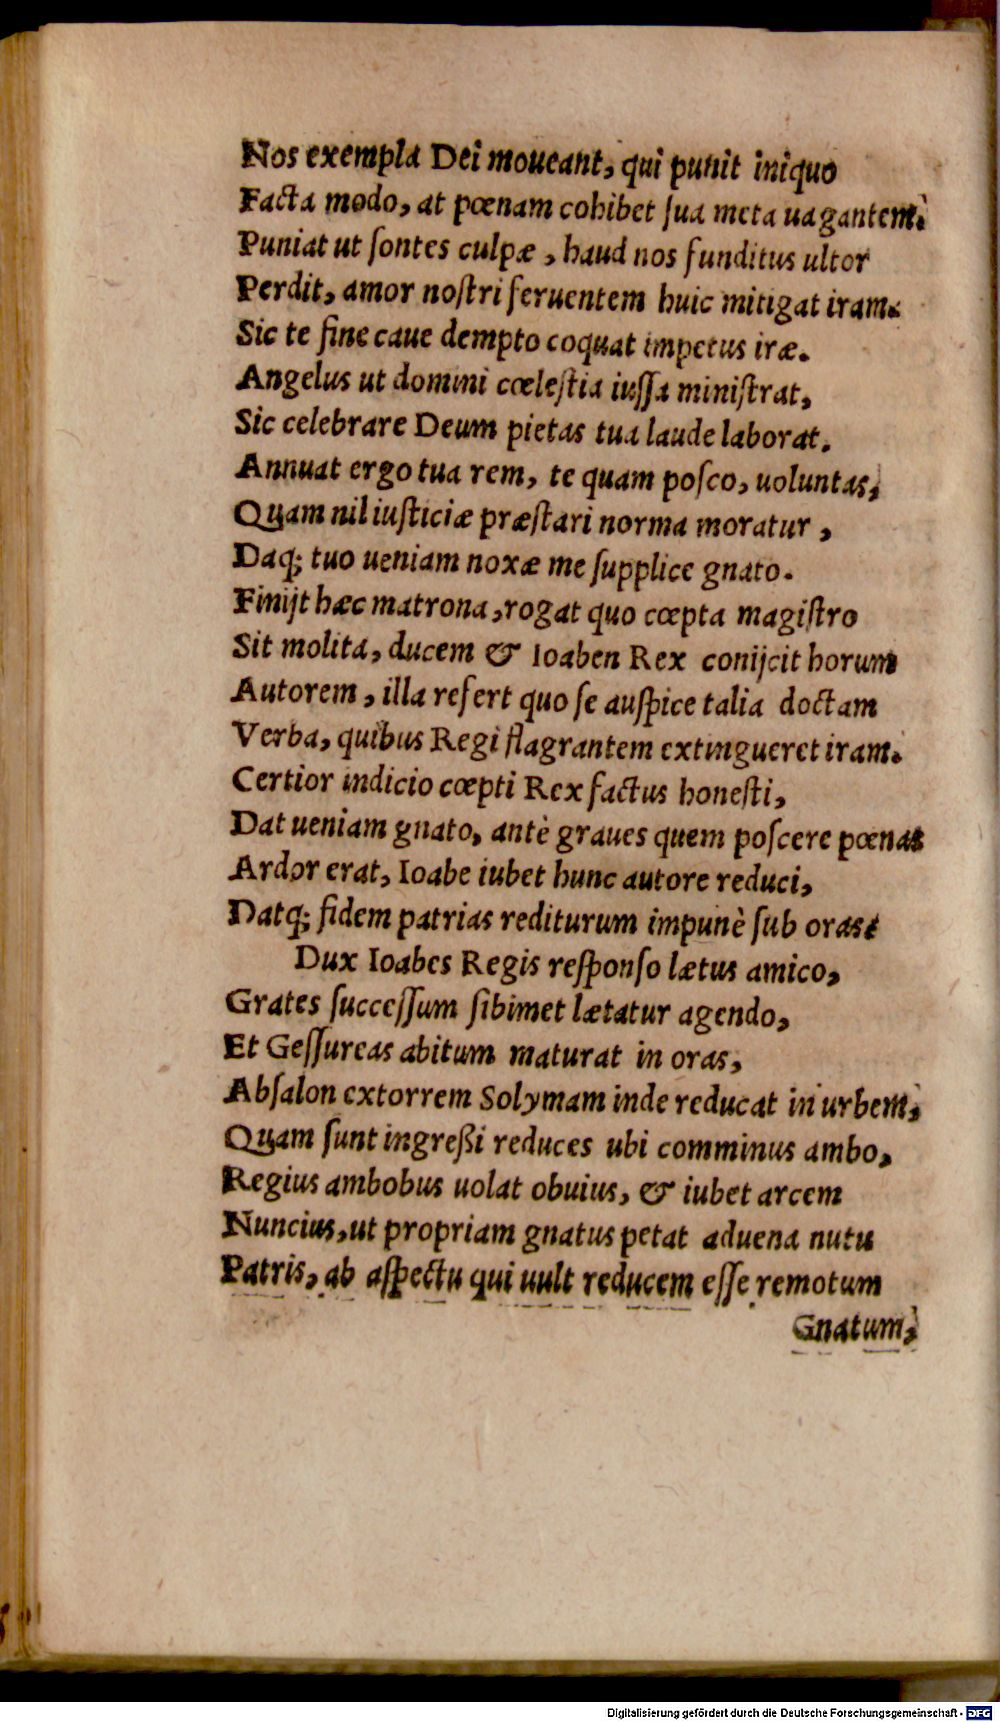 Nos exempla Dei moueant, qui punit iniquo
Facta modo, at pœnam cohibet ſua meta uagantem.
Puniat ut ſontes culpæ , haud nos funditus ultor
Perdit, amor noſtri feruentem huic mitigat iram.
Sic te fine caue dempto coquat impetus iræ.
Angelus ut domini cœleſtia iuſſa miniſtrat,
Sic celebrare Deum pietas tua laude laborat.
Annuat ergo tua rem, te quam poſco, uoluntas,
Quam nil iuſticiæ præſtari norma moratur ,
Daq́; tuo ueniam noxæ me ſupplice gnato.
Finijt hæc matrona, rogat quo cœpta magiſtro
Sit molita, ducem & Ioaben Rex conijcit horum
Autorem, illa refert quo ſe auſpice talia doctam
Verba, quibus Regi flagrantem extingueret iram.
Certior indicio cœpti Rex factus honeſti,
Dat ueniam gnato, antè graues quem poſcere pœnas
Ardor erat, Ioabe iubet hunc autore reduci,
Datq́; fidem patrias rediturum impunè ſub oras.
Dux Ioabes Regis reſponſo lætus amico,
Grates ſucceſſum ſibimet lætatur agendo,
Et Geſſureas abitum maturat in oras,
Abſalon extorrem Solymam inde reducat in urbem,
Quam ſunt ingreßi reduces ubi comminus ambo,
Regius ambobus uolat obuius, & iubet arcem
Nuncius, ut propriam gnatus petat aduena nutu
Patris, ab aſpectu qui uult reducem eſſe remotum
Gnatum,
Digitalisierung gefördert durch die Deutsche Forschungsgemeinschaft - DFG